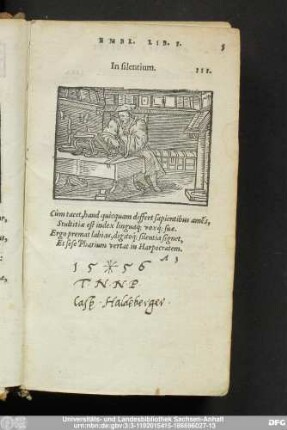 EMBL. LIB. I. 5
In silentium. III.
Cùm tacet, haud quicquam differt sapientibus amẽs,
Stultitiæ est index linguaq́; voxq́; suæ.
Ergo premat labias, digitoq́; silentia signet,
Et sese Pharium vertat in Harpocratem.
15 56
T.N.N.P.
Casp. Haldẽberger.
Universitäts- und Landesbibliothek Sachsen-Anhalt
urn:nbn:de:gbv:3:3-1192015415-186686027-13
DFG